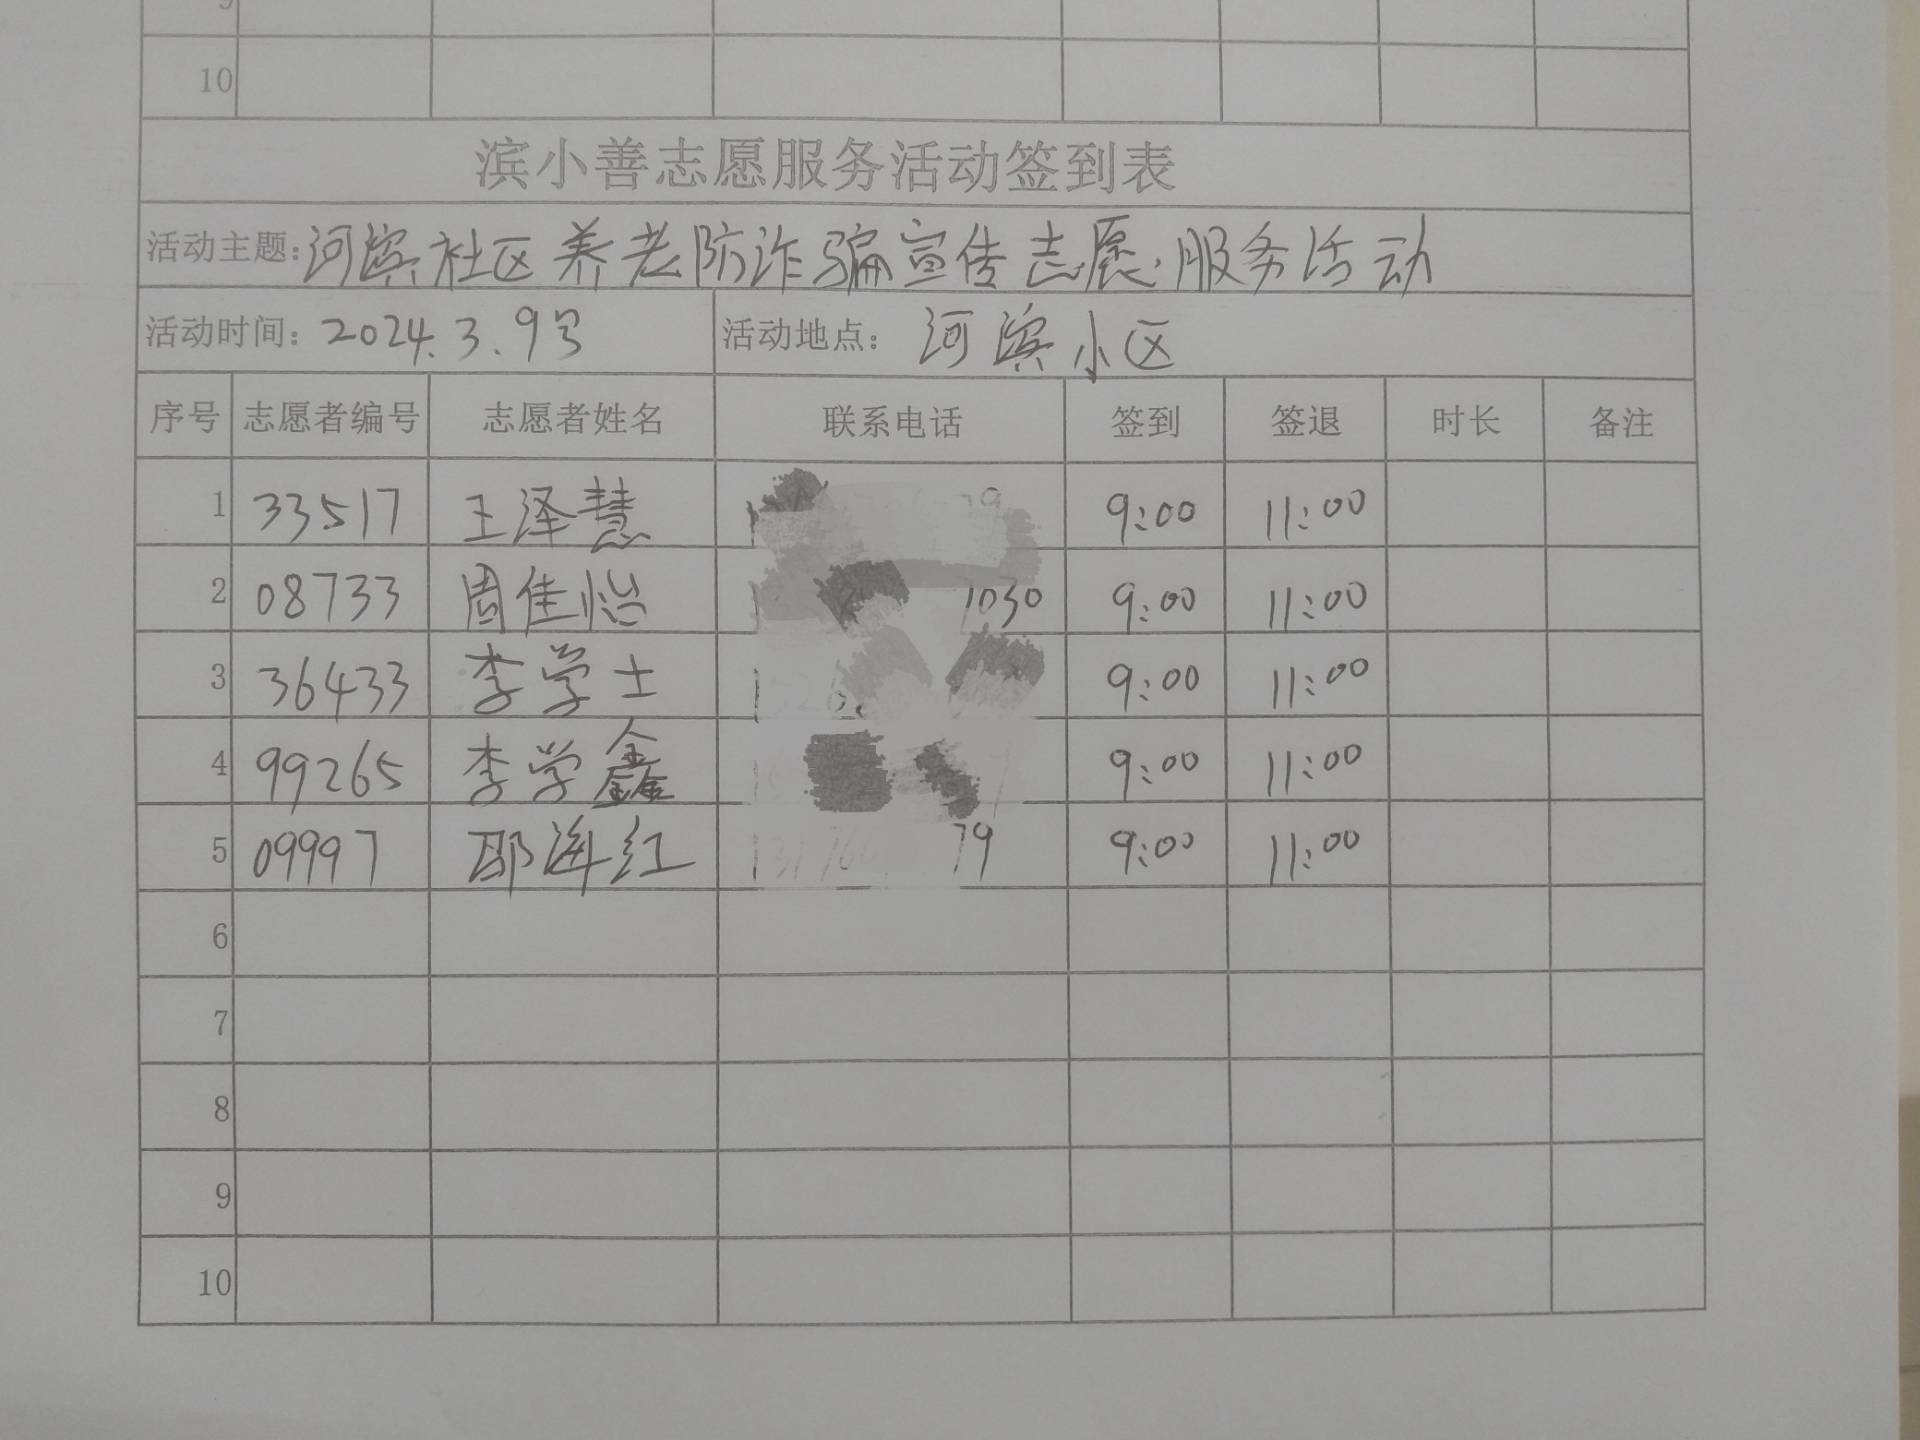 10
滨小善志愿服务活动签到表
活动主题：河滨社区养老防诈骗宣传志愿服务活动
活动时间：2024.3.9号 活动地点：河滨小区
序号 志愿者编号 志愿者姓名 联系电话 签到 签退 时长 备注
1 33517 王泽慧 9:00 11:00
2 08733 周佳怡 1030 9:00 11:00
3 36433 李学士 9:00 11:00
4 99265 李学鑫 9:00 11:00
5 09997 邵海红 79 9:00 11:00
6
7
8
9
10